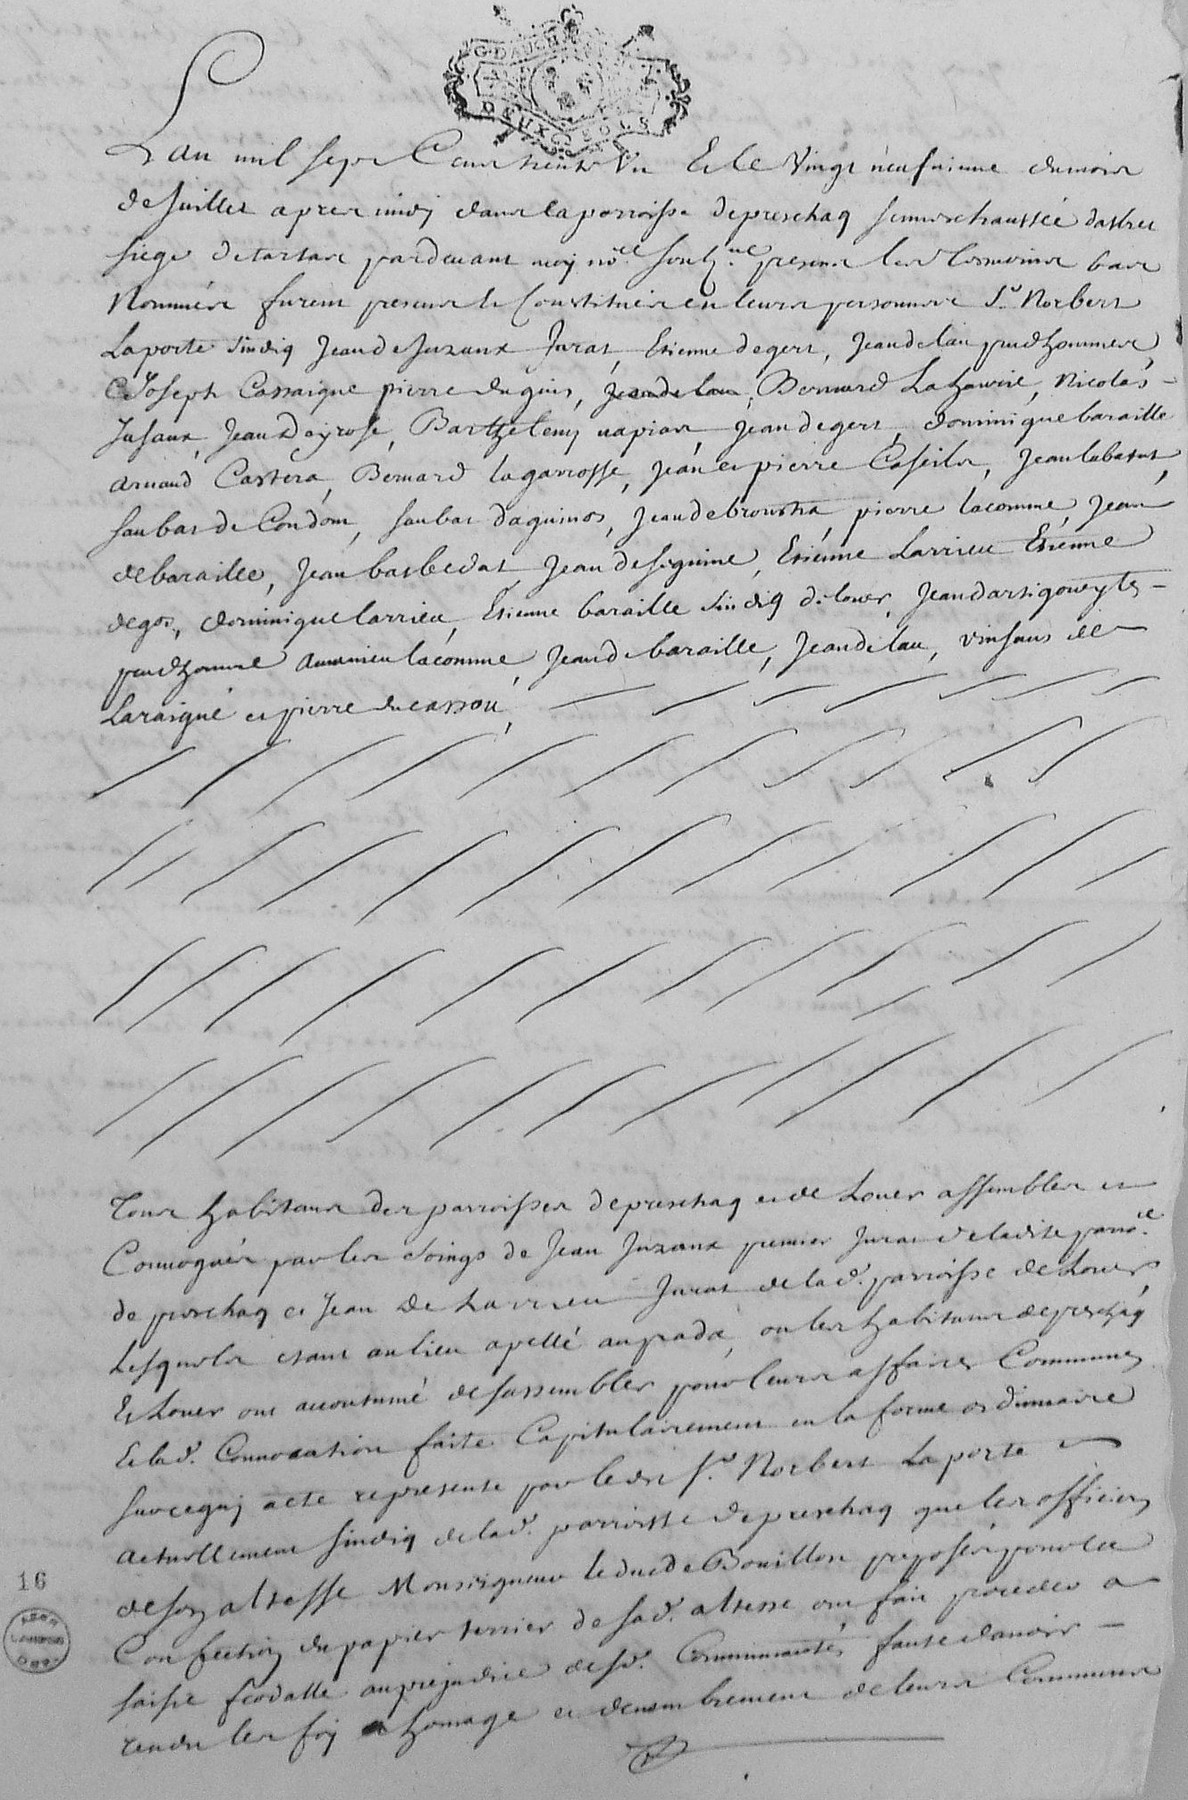 G. DAUCH
DEUX SOLS
L'an mil sept Cent trente Un Et le Vingt neufvieme du mois
de Juillet apres midy dans la parroisse de preschaq senneschaussée dasbret
siege de tartas pardevant moy nore. souhz.ne presens les tesmoins bas
Nommés furent presens & Constitués en leurs personnes Sr. Norbert
Laporte sindiq Jean de Juzanx Jurat, Etienne degert, Jean delau prudhommes,
Joseph Cassaigne pierre duguis, Jean de lau, Bernard Lahourie, Nicolas
Jusanx, Jean Deyrose, Barthelemy napias, Jean degert, dominique baraille
arnaud Castera, Bernard lagarrosse, Jean et pierre Caseils, Jean labatut,
saubat de Condom, saubat daguinos, Jean debroustra, pierre lacomme, Jean
debaraille, Jean basbedat, Jean deseguine, Etienne Larrieu Etienne
degos, dominique larrieu, Etienne baraille sindiq de louer, Jean dartigoueytes
prudhomme amanieu lacomme, Jean de baraille, Jean de lau, vinsans de
Laraigné et pierre ducassou,
Tous habitans des parroisses de preschaq et de Louer assembles et
Convoqués par les soings de Jean Juzanx premier Jurat de ladite parre.
de preschaq et Jean De Larrieu Jurat de lad. parroisse de Louer,
Lesquels etant au lieu apellé auprada, ou les habitans de preschaq
Et Louer ont accoutumé de sassembler pour leurs affaires Communes
Et lad. Convocation faite Capitulairement en la forme ordinaire
sur ce quj acte represente par ledit sr. Norbert Laporte
actuellement sindiq de lad. parroisse de preschaq que les officiers
de son altesse Monseigneur le duc de Bouillon preposés pour la
Confection du papier terrier de sad. altesse ont fait proceder a
saisie feodalle au prejudice desd. Communautés, faute d'avoir
rendu les foy & homage et denombrement de leurs Communes
16